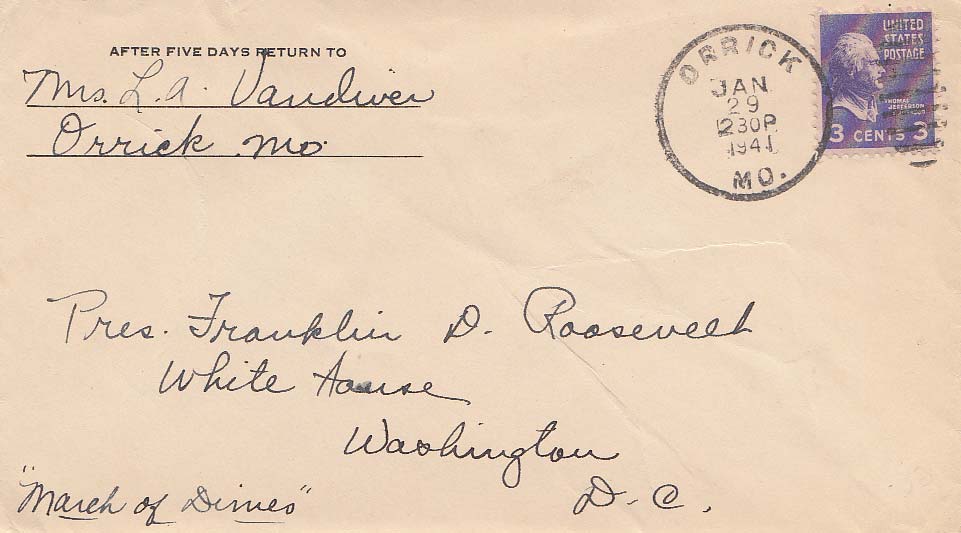 AFTER FIVE DAYS RETURN TO
Mrs. L. A. Vandiver
Orrick Mo.
ORRICK
JAN
29
1230P
1941
MO.
UNITED
STATES
POSTAGE
THOMAS
JEFFERSON
3 CENTS 3
Pres. Franklin D. Roosevelt
White House
Washington
D. C.
"March of Dimes"